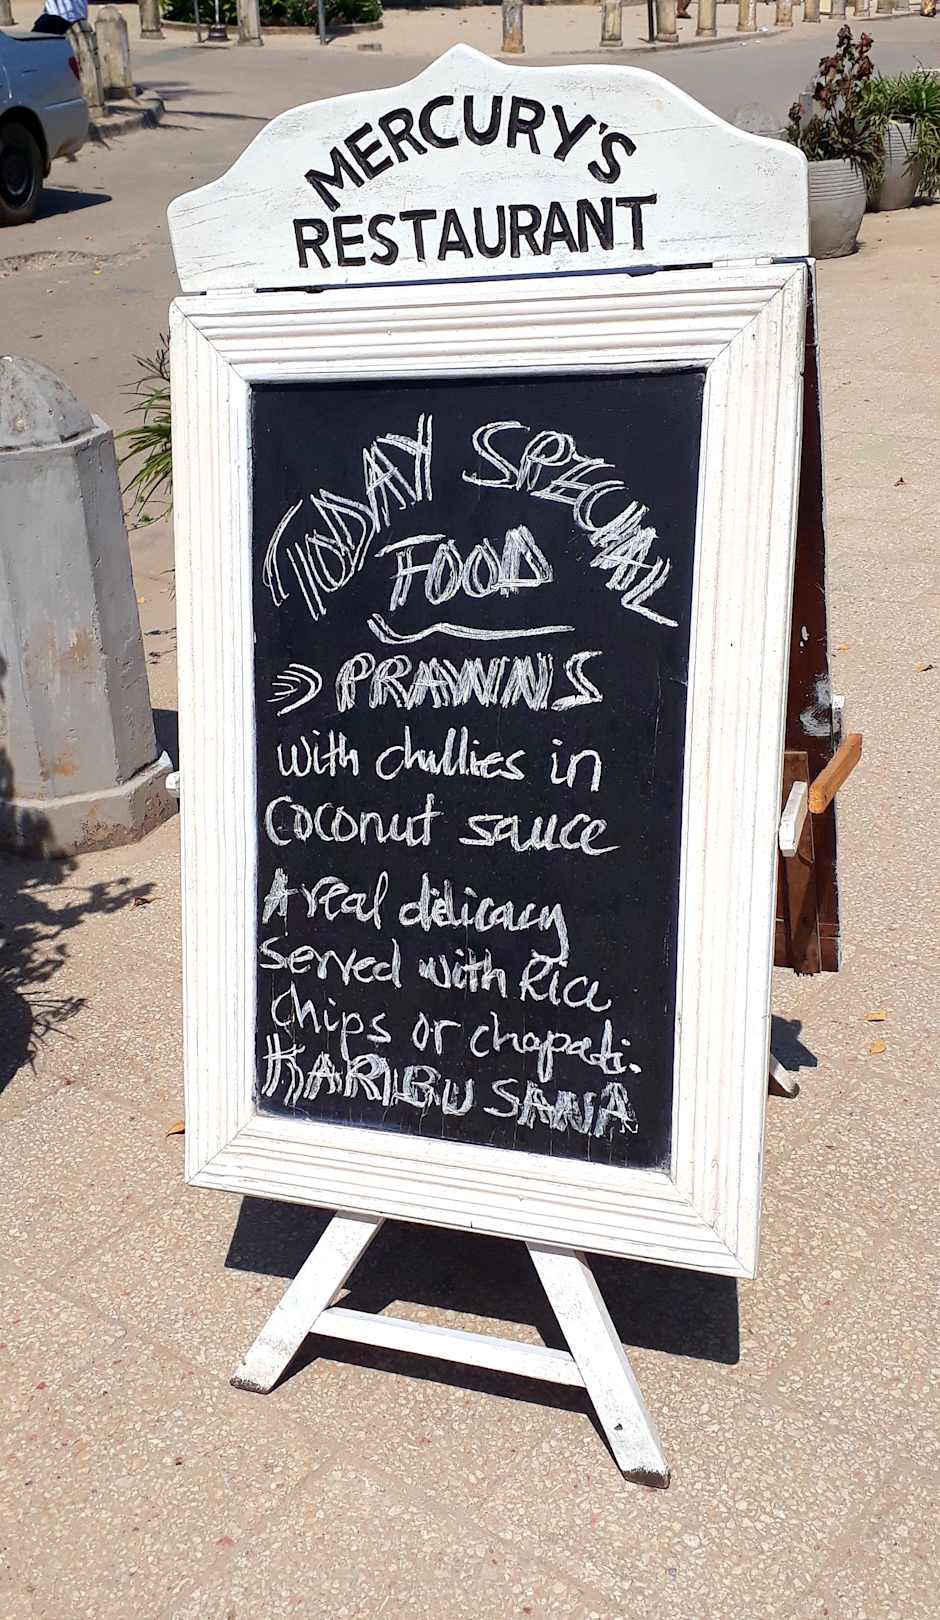 MERCURY'S
RESTAURANT
TODAY SPECIAL
FOOD
PRAWNS
with chillies in
Coconut sauce
A real delicacy
served with Rice
Chips or chapati.
KARIBU SANA